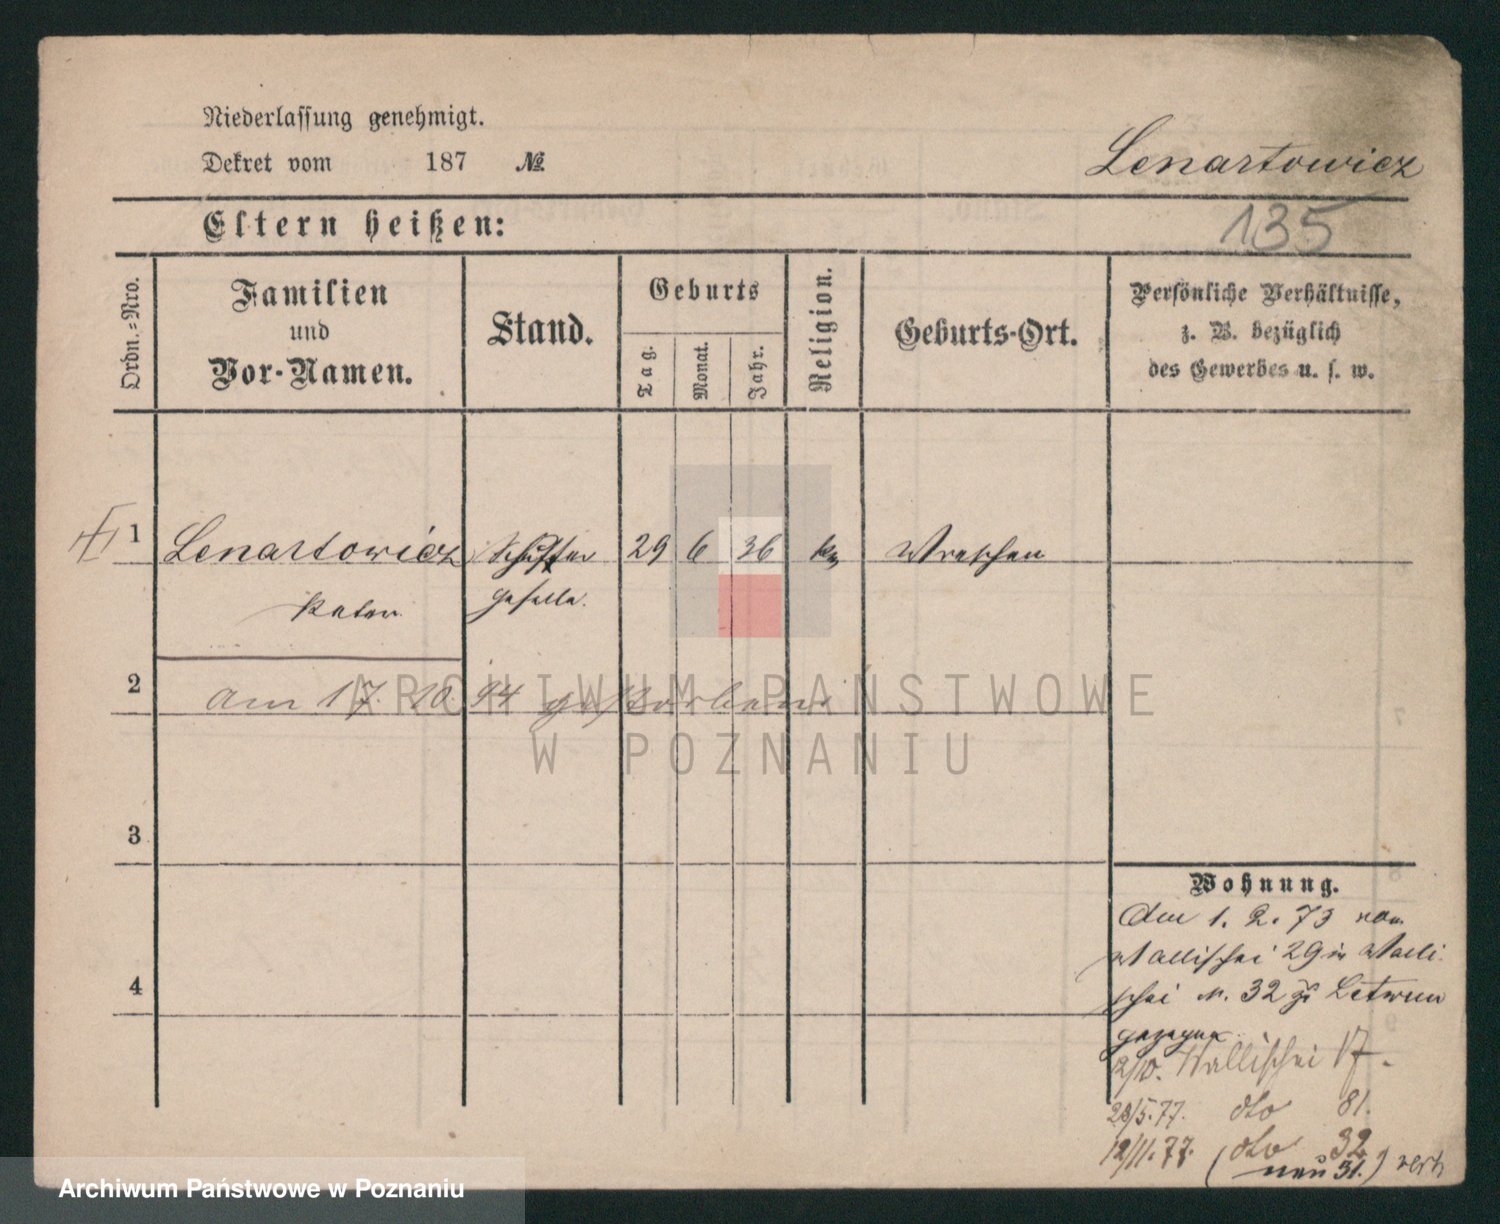 Niederlassung genehmigt.
Dekret vom 187 №
Lenartowicz
Eltern heißen:
135
Ordn.=Nro.
Familien
und
Vor-Namen.
Stand.
Geburts
Tag.
Monat.
Jahr.
Religion.
Geburts-Ort.
Persönliche Verhältnisse,
z. B. bezüglich
des Gewerbes u. s. w.
1 Lenartowicz Schuster 29 6 36 Wreschen
Peter geselle.
2 am 17. 10. 94 gestorben.
3
4
Wohnung.
Am 1. 2. 73 von
Wallischei 29 Walli
schei N. 32 zu
gezogen.
12/10. Wallischei 17.
28/5.77. dto 81.
12/11.77. (dto 32
neu 31.)
ARCHIWUM PAŃSTWOWE
W POZNANIU
Archiwum Państwowe w Poznaniu